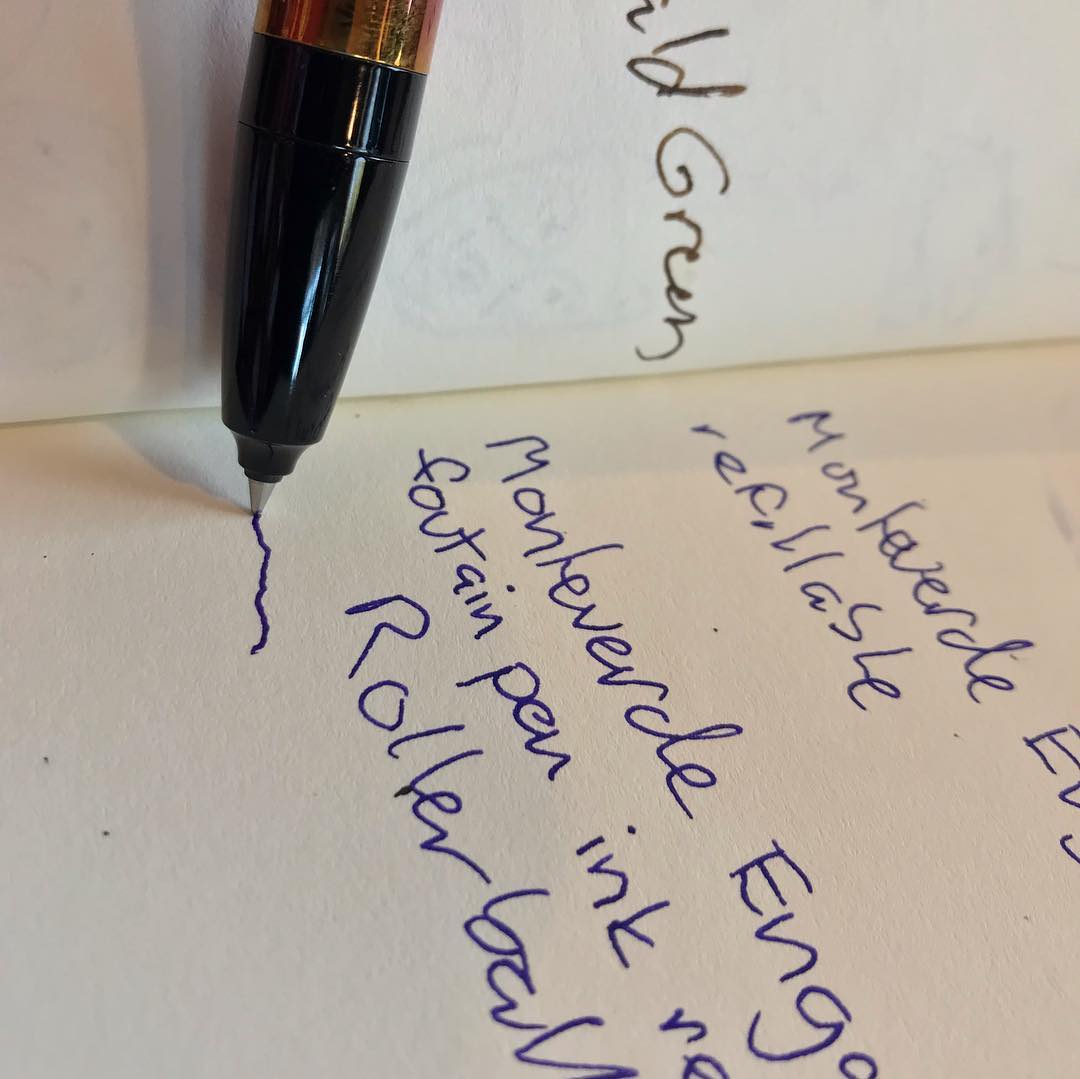 Green
Monteverde
refillable
Monteverde
foutain pen ink
Rollerball